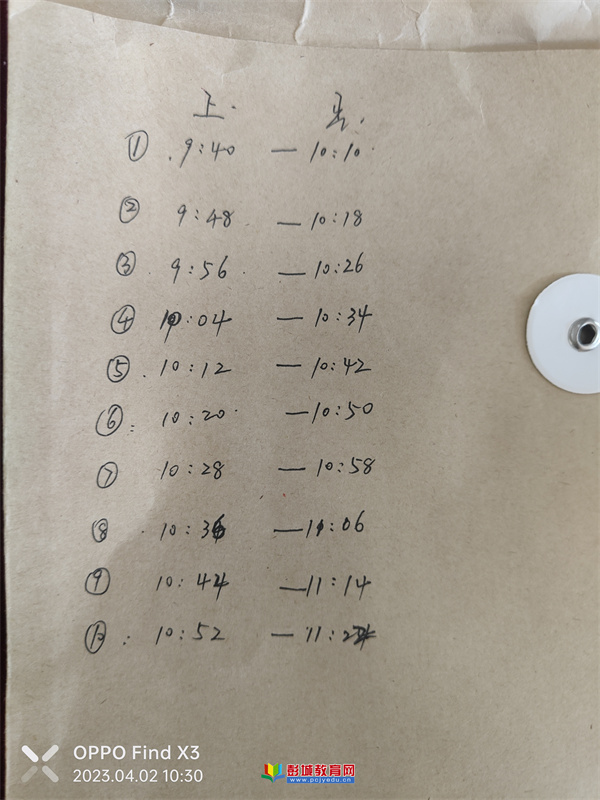 上.
① 9:40 — 10:10
② 9:48 — 10:18
③ 9:56 — 10:26
④ 10:04 — 10:34
⑤ 10:12 — 10:42
⑥: 10:20 — 10:50
⑦ 10:28 — 10:58
⑧ 10:36 — 11:06
⑨ 10:44 — 11:14
⑩: 10:52 — 11:22
OPPO Find X3
2023.04.02 10:30
彭城教育网
www.pcjyedu.cn